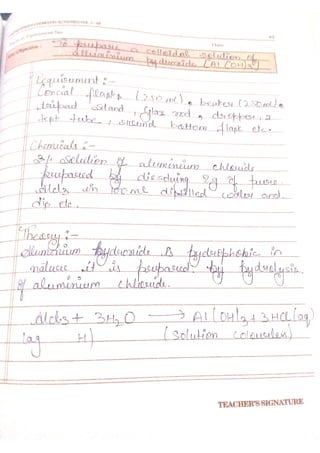 To prepare a colloidal solution of
aluminium hydroxide [Al(OH)3]
Requirement :-
Conical flask (250 ml), beaker (250ml),
tripod stand, glass rod, dropper, a
test tube, round bottom flask etc.
Chemicals :-
2% solution of aluminium chloride
prepared by dissolving 2g of pure
AlCl3 in 100 ml distilled water and
dip. etc.
Theory :-
Aluminium hydroxide is hydrophobic in
nature it is prepared by hydrolysis
of aluminium chloride.
AlCl3 + 3H2O → Al(OH)3 + 3HCl (aq)
(aq H) (Solution colourless)
TEACHER'S SIGNATURE